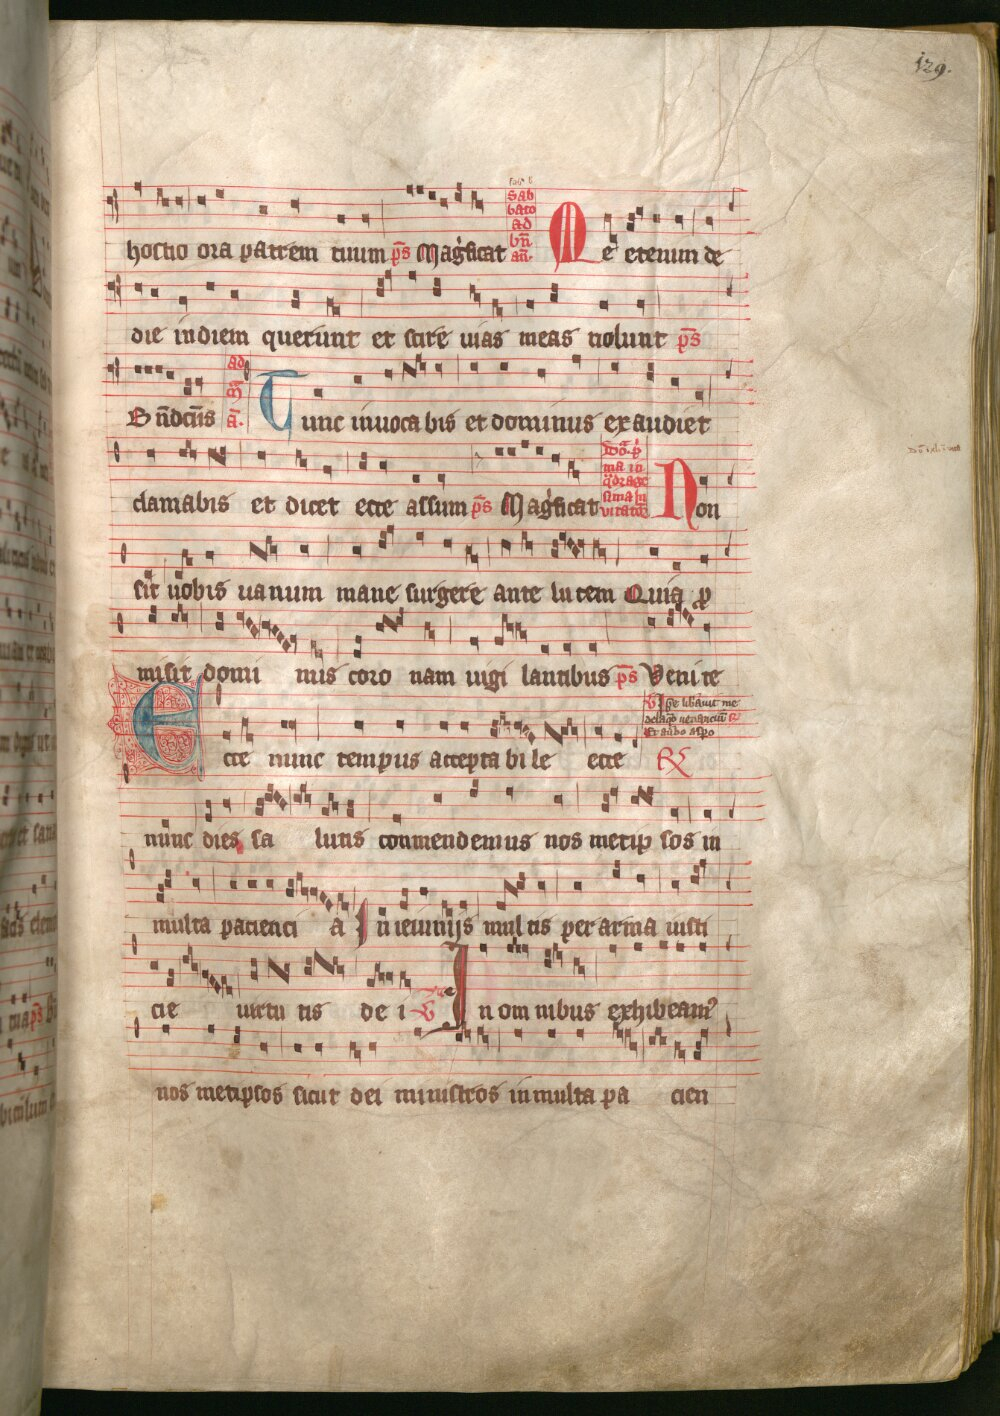 129.
hostio ora patrem tuum p̄s Mag̉ficat
sab
bato
ad
bn̄
an̄.
Me etenim de
die in diem querunt et scire uias meas nolunt p̄s
Bn̄dc̄us
ad
ā.
Tunc inuoca bis et dominus exaudiet
clamabis et dicet ecce assum p̄s Mag̉ficat
ma in
q̄drage
sima in
uitatoȓ
Non
sit uobis uanum mane surgere ante lucem Quia ꝓ
misit domi nus coro nam uigi lantibus p̄s Venite
V Ipse lib̄auit me
de laq̊o uenanciū R
Et a ūbo aspo
Ecce nunc tempus accepta bi le ecce R
nunc dies sa lutis conmendemus nos metip sos in
multa pacienci a In ieiunijs mul tis per arma iusti
cie uirtu tis de i V In om nibus exhibeam᾽
nos metipsos sicut dei ministros in multa pa cien